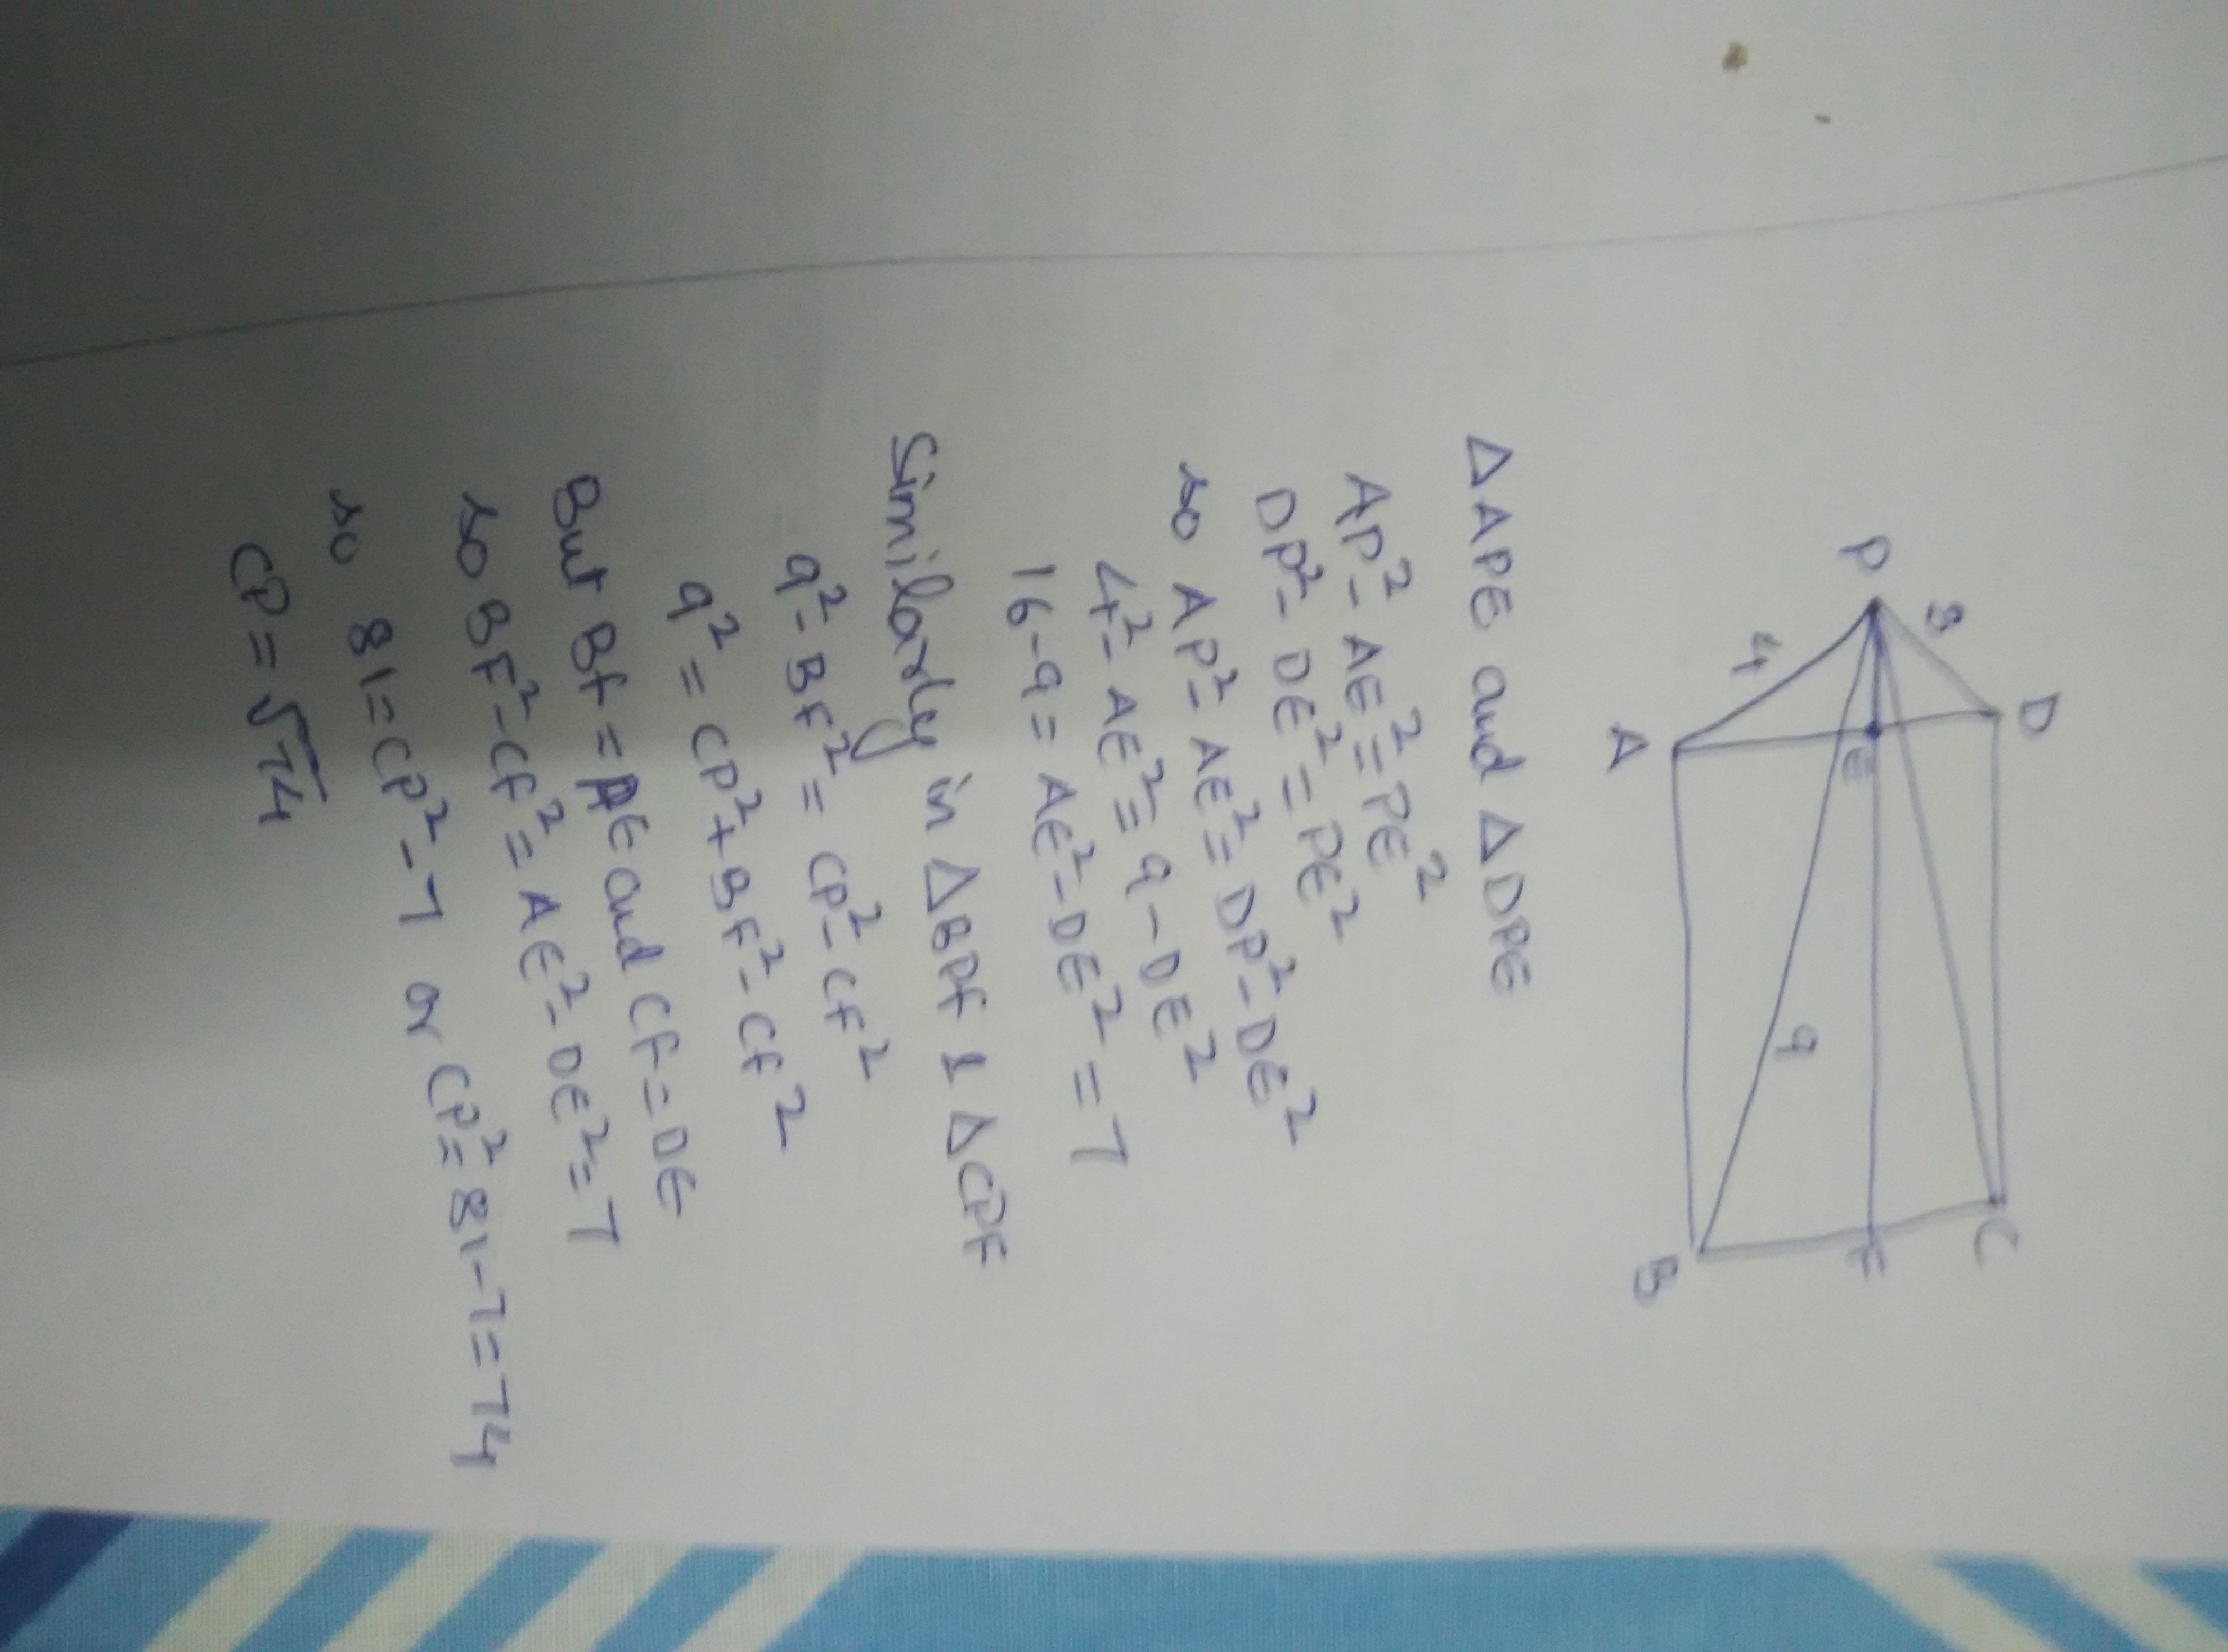 D
C
3
P
E
F
4
9
A
B
Δ APE and Δ DPE
AP² - AE² = PE²
DP² - DE² = PE²
so AP² - AE² = DP² - DE²
4² - AE² = 9 - DE²
16-9 = AE² - DE² = 7
Similarly in Δ BPF & Δ CPF
9² - BF² = CP² - CF²
9² = CP² + BF² - CF²
But BF = AE and CF = DE
so BF² - CF² = AE² - DE² = 7
so 81 = CP² - 7 or CP² = 81 - 7 = 74
CP = √74